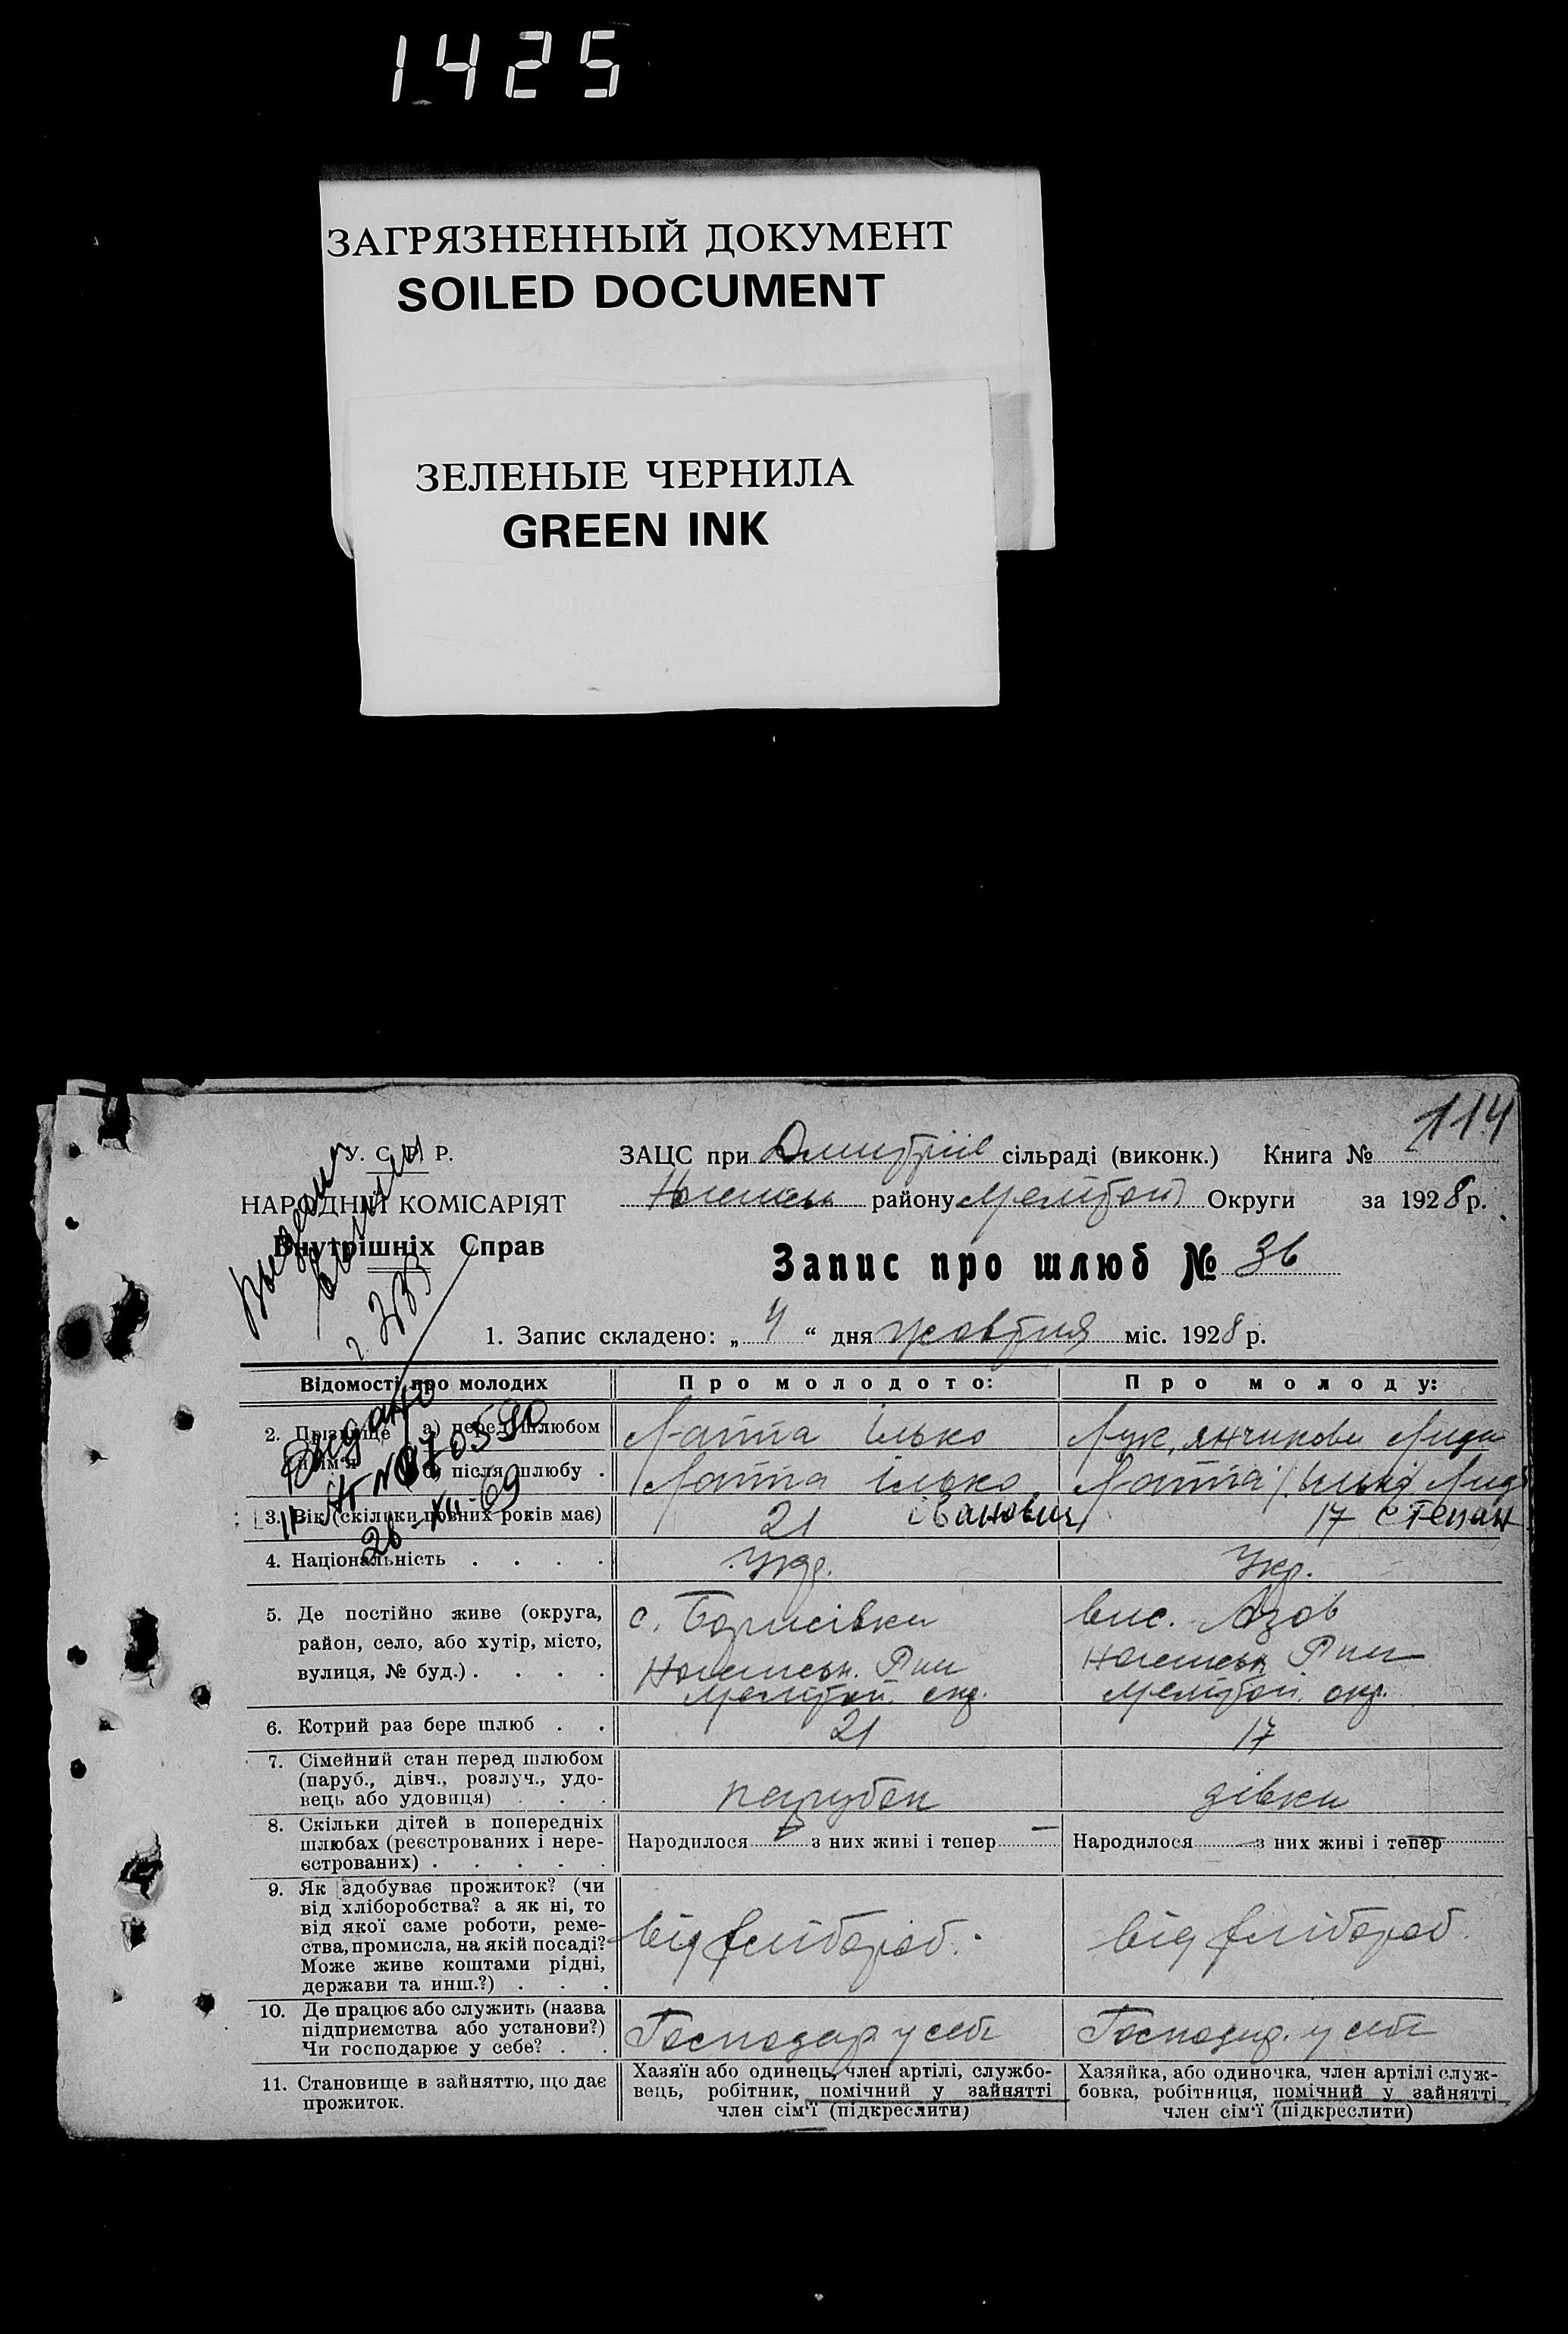 1425
ЗАГРЯЗНЕННЫЙ ДОКУМЕНТ
SOILED DOCUMENT
ЗЕЛЕНЫЕ ЧЕРНИЛА
GREEN INK
114
У. С. Р. Р.
НАРОДНІЙ КОМІСАРІЯТ
Внутрішніх Справ
ЗАЦС при Дмитрів сільраді (виконк.) Книга №
району Меліtоп Округи за 1928 р.
Запис про шлюб № 36
1. Запис складено: „ 4 “ дня жовтня міс. 1928 р.
Відомості про молодих
Про молодого:
Про молоду:
2. Прізвище а) перед шлюбом
Латта Ілько
й ім'я б) після шлюбу .
Латта Ілько
Іванович
3. Вік (скільки повних років має)
21
17 Степан
4. Національність . . . .
Укр.
Укр.
5. Де постійно живе (округа,
район, село, або хутір, місто,
вулиця, № буд.) . . . .
с. Борисівка
вис. Азов
6. Котрий раз бере шлюб . .
21
17
7. Сімейний стан перед шлюбом
(паруб., дівч., розлуч., удо-
вець або удовиця) . . .
парубок
дівка
8. Скільки дітей в попередніх
шлюбах (реєстрованих і нере-
єстрованих) . . . . .
Народилося — з них живі і тепер —
Народилося — з них живі і тепер —
9. Як здобуває прожиток? (чи
від хліборобства? а як ні, то
від якої саме роботи, реме-
ства, промисла, на якій посаді?
Може живе коштами рідні,
держави та инш.?) . . .
від хлібороб.
від хлібороб.
10. Де працює або служить (назва
підприємства або установи?)
Чи господарює у себе? . .
Господар у себе
Господар. у себе
11. Становище в зайняттю, що дає
прожиток.
Хазяїн або одинець, член артілі, службо-
вець, робітник, помічний у зайнятті
член сім'ї (підкреслити)
Хазяйка, або одиночка, член артілі служ-
бовка, робітниця, помічний у зайнятті
член сім'ї (підкреслити)
Видано
26-XII-69